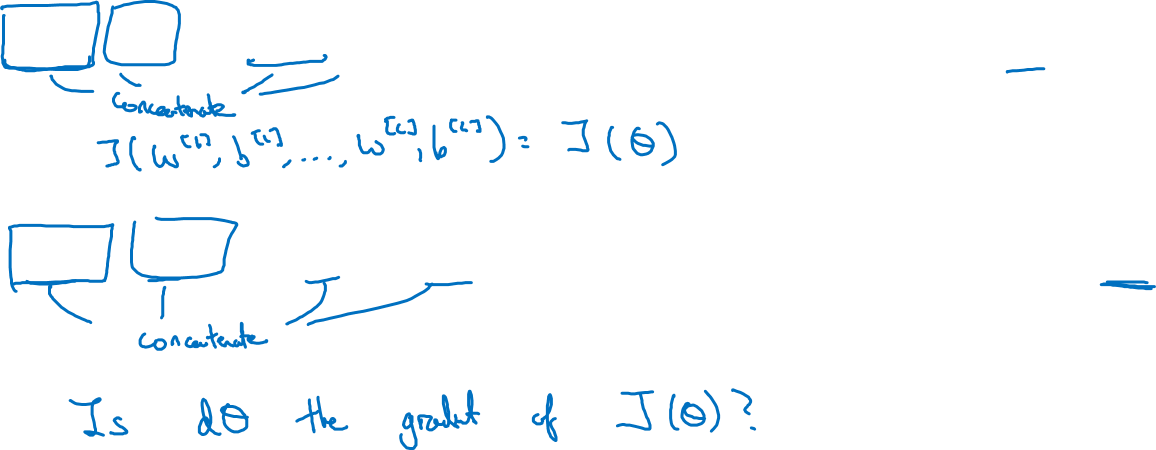 concatenate
J(W^[1], b^[1], ..., W^[L], b^[L]) = J(θ)
concatenate
Is dθ the gradient of J(θ)?